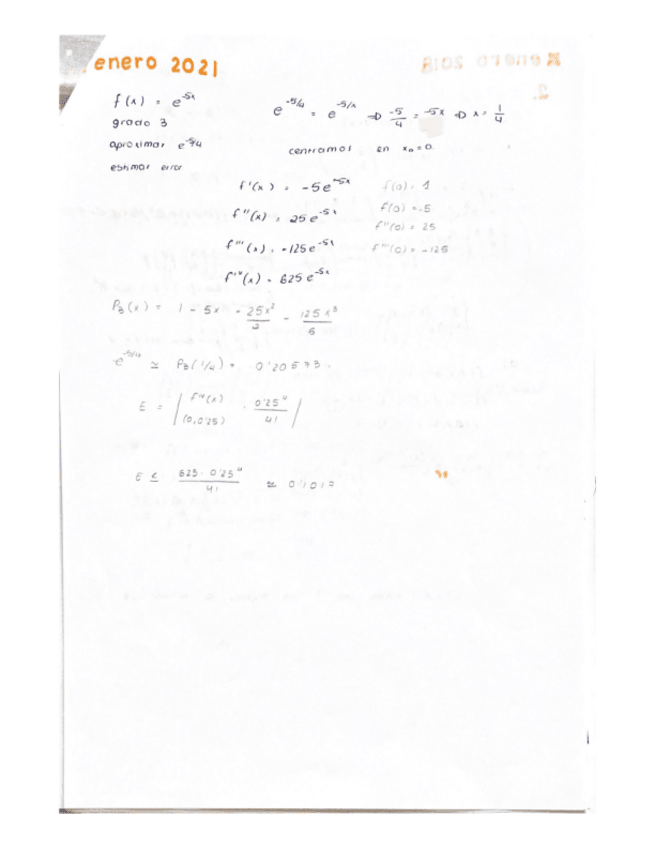 enero 2021
f(x) = e^-5x
grado 3
aproximar e^-5/4
estimar error
e^-5/4 = e^-5/x ⇒ -5/4 = -5x ⇒ x = 1/4
centramos en x₀ = 0
f'(x) = -5e^-5x
f''(x) = 25e^-5x
f'''(x) = -125e^-5x
f''''(x) = 625e^-5x
f(0) = 1
f(0) = -5
f''(0) = 25
f'''(0) = -125
P₃(x) = 1 - 5x + 25x²/2 - 125x³/6
e^-5/4 ≃ P₃(1/4) = 0'20573
E = | f''''(x) (0,0'25) · 0'25⁴/4! |
E ≤ 625 · 0'25⁴/4! ≃ 0'1017